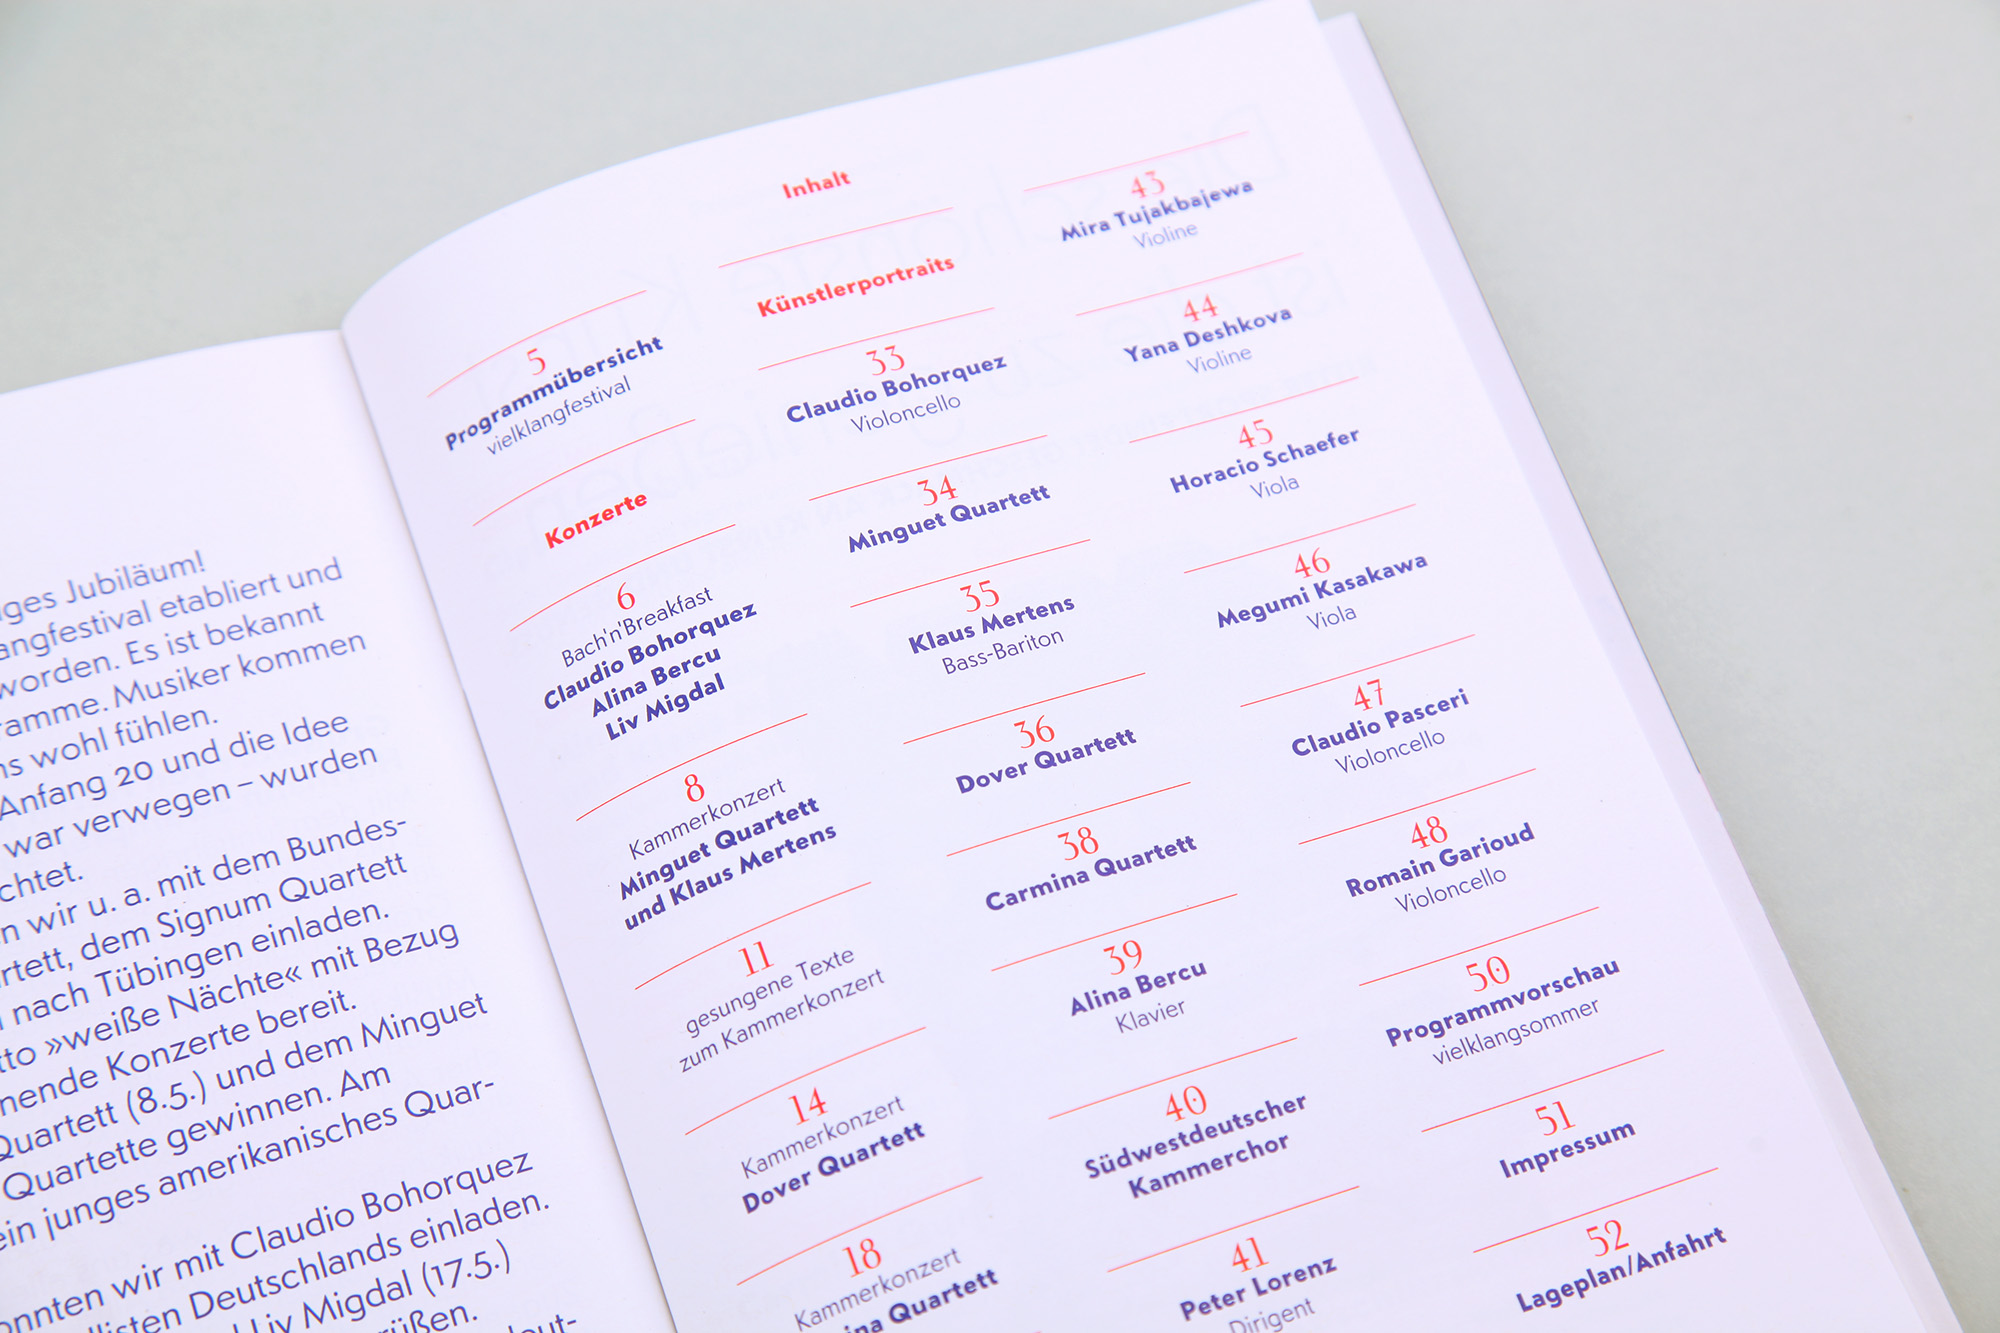 ges Jubiläum!
angfestival etabliert und
worden. Es ist bekannt
ramme. Musiker kommen
ns wohl fühlen.
Anfang 20 und die Idee
war verwegen – wurden
chtet.
n wir u. a. mit dem Bundes-
rtett, dem Signum Quartett
nach Tübingen einladen.
tto »weiße Nächte« mit Bezug
nende Konzerte bereit.
Quartett (8.5.) und dem Minguet
Quartette gewinnen. Am
ein junges amerikanisches Quar-
onnten wir mit Claudio Bohorquez
listen Deutschlands einladen.
Liv Migdal (17.5.)
rüßen.
Inhalt
5
Programmübersicht
vielklangfestival
Konzerte
6
Bach'n'Breakfast
Claudio Bohorquez
Alina Bercu
Liv Migdal
8
Kammerkonzert
Minguet Quartett
und Klaus Mertens
11
gesungene Texte
zum Kammerkonzert
14
Kammerkonzert
Dover Quartett
18
Kammerkonzert
ina Quartett
Künstlerportraits
33
Claudio Bohorquez
Violoncello
34
Minguet Quartett
35
Klaus Mertens
Bass-Bariton
36
Dover Quartett
38
Carmina Quartett
39
Alina Bercu
Klavier
40
Südwestdeutscher
Kammerchor
41
Peter Lorenz
Dirigent
43
Mira Tujakbajewa
Violine
44
Yana Deshkova
Violine
45
Horacio Schaefer
Viola
46
Megumi Kasakawa
Viola
47
Claudio Pasceri
Violoncello
48
Romain Garioud
Violoncello
50
Programmvorschau
vielklangsommer
51
Impressum
52
Lageplan/Anfahrt